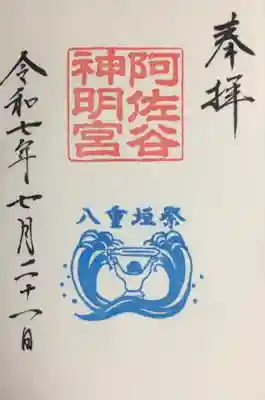 奉拝
阿佐谷
神明宮
八重垣祭
令和七年七月二十一日